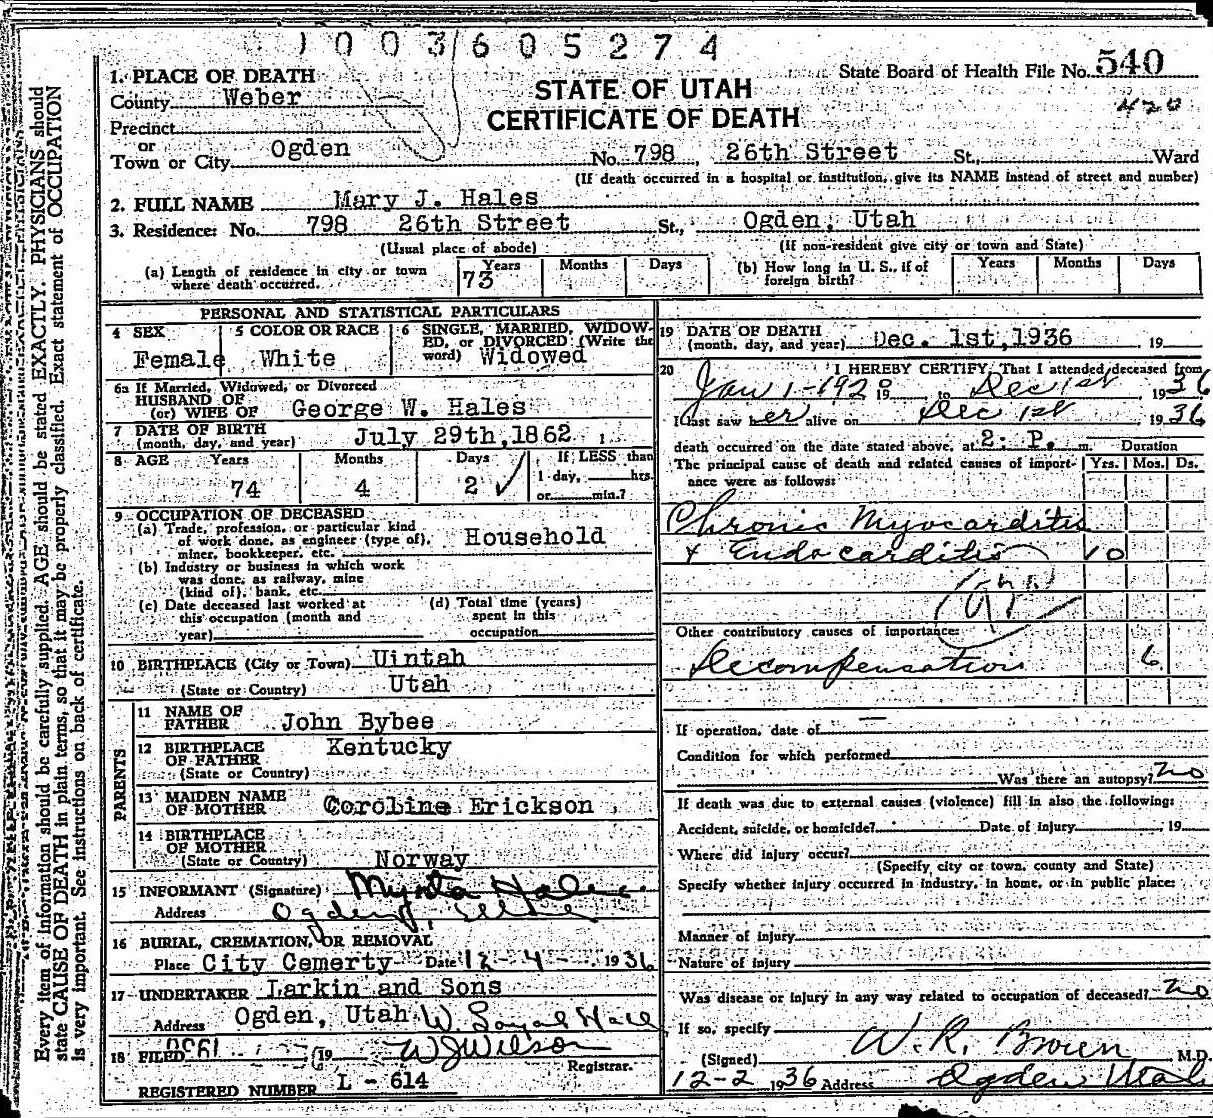 1003605274
1. PLACE OF DEATH
County Weber
STATE OF UTAH
CERTIFICATE OF DEATH
State Board of Health File No. 540
420
Precinct
or
Town or City Ogden No. 798, 26th Street St., Ward
(If death occurred in a hospital or institution, give its NAME instead of street and number)
2. FULL NAME Mary J. Hales
3. Residence: No. 798 26th Street St., Ogden, Utah
(Usual place of abode) (If non-resident give city or town and State)
(a) Length of residence in city or town where death occurred. 73 Years Months Days
(b) How long in U. S., if of foreign birth? Years Months Days
PERSONAL AND STATISTICAL PARTICULARS
4 SEX Female
5 COLOR OR RACE White
6 SINGLE, MARRIED, WIDOWED, or DIVORCED (Write the word) Widowed
6a If Married, Widowed, or Divorced
HUSBAND OF
(or) WIFE OF George W. Hales
7 DATE OF BIRTH
(month, day, and year) July 29th, 1862
8 AGE Years Months Days If LESS than
74 4 2 1 day, hrs.
or min.?
9 OCCUPATION OF DECEASED
(a) Trade, profession, or particular kind
of work done, as engineer (type of),
miner, bookkeeper, etc. Household
(b) Industry or business in which work
was done, as railway, mine
(kind of), bank, etc.
(c) Date deceased last worked at
this occupation (month and
year)
(d) Total time (years)
spent in this
occupation
10 BIRTHPLACE (City or Town) Uintah
(State or Country) Utah
PARENTS
11 NAME OF
FATHER John Bybee
12 BIRTHPLACE
OF FATHER Kentucky
(State or Country)
13 MAIDEN NAME
OF MOTHER Coroline Erickson
14 BIRTHPLACE
OF MOTHER
(State or Country) Norway
15 INFORMANT (Signature) Myrta Hales
Address Ogden, Utah
16 BURIAL, CREMATION, OR REMOVAL
Place City Cemerty Date 12-4- 1936
17 UNDERTAKER Larkin and Sons
Address Ogden, Utah W.
18 FILED 19 W J Wilson
Registrar.
REGISTERED NUMBER L - 614
19 DATE OF DEATH
(month, day, and year) Dec. 1st, 1936 19
20 I HEREBY CERTIFY, That I attended deceased from
Jan 1-1920 19 to Dec 1st 1936
I last saw her alive on Dec 1st 1936
death occurred on the date stated above, at 2: P. m. Duration
The principal cause of death and related causes of importance were as follows: Yrs. Mos. Ds.
Chronic Myocarditis
& Endocarditis 10
Other contributory causes of importance:
Decompensation 6
If operation, date of —
Condition for which performed
Was there an autopsy? no
If death was due to external causes (violence) fill in also the following:
Accident, suicide, or homicide? Date of injury , 19
Where did injury occur?
(Specify city or town, county and State)
Specify whether injury occurred in industry, in home, or in public place:
Manner of injury
Nature of injury
Was disease or injury in any way related to occupation of deceased? no
If so, specify
(Signed) W. R. Brown M.D.
12-2 1936 Address Ogden Utah
Every item of information should be carefully supplied. AGE should be stated EXACTLY. PHYSICIANS should
state CAUSE OF DEATH in plain terms, so that it may be properly classified. Exact statement of OCCUPATION
is very important. See instructions on back of certificate.